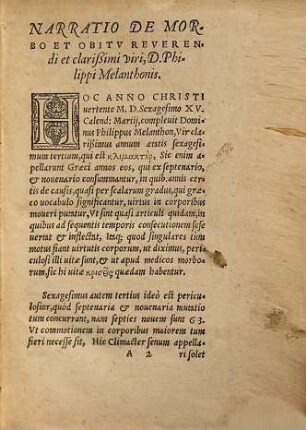 NARRATIO DE MOR-
BO ET OBITV REVEREN-
di et clarißimi viri, D. Phi-
lippi Melanthonis.
HOC ANNO CHRISTI
uertente M. D. Sexagesimo XV.
Calend: Martij, compleuit Domi-
nus Philippus Melanthon, Vir cla-
rißimus annum ætatis sexagesi-
mum tertium, qui est κλιμακτὴρ. Sic enim ap-
pellarunt Græci annos eos, qui ex septenario,
et nouenario consummantur, in quib. annis cer-
tis de causis, quasi per scalarum gradus, qui græ-
co uocabulo significantur, uirtus in corporibus
moueri putatur, Vt sint quasi articuli quidam, in
quibus ad sequentis temporis consecutionem sese
uertat & inflectat, Itaq; quod singulares tum
motus fiant uirtutis corporum, ut diximus, peri-
culosi illi uitæ sunt, & ut apud medicos morbo-
rum, sic hi uitæ κρίσεις quædam habentur.
Sexagesimus autem tertius ideò est pericu-
losior, quod septenaria & nouenaria mutatio
tum concurrant, nam septies nouem sunt 63.
Vt commotionem in corporibus maiorem tum
fieri necesse sit, Hic Climacter senum appella-
A 2 ri solet